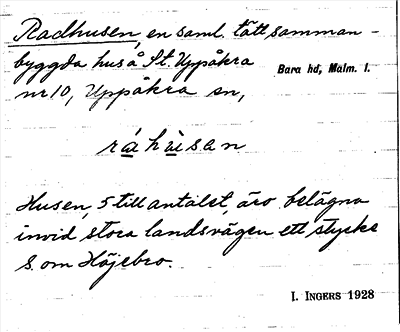 Radhusen, en saml. tätt samman-
byggda hus å St. Uppåkra
Bara hd, Malm. l.
nr 10, Uppåkra sn,
ráhùsan
Husen, 5 till antalet, äro belägna
invid stora landsvägen ett stycke
S. om Höjebro.
I. INGERS 1928